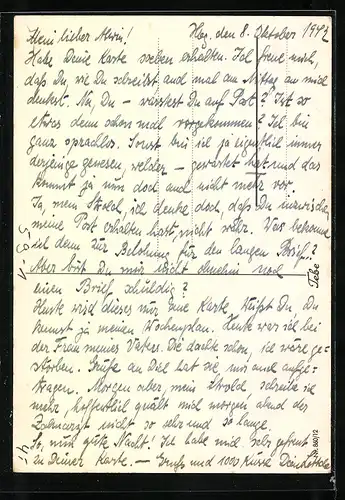 Mein lieber Mann! Hof, den 8. Oktober 1942
Habe Deine Karte soeben erhalten. Ich freue mich,
daß Du wie Du schreibst auch mal am Mittag an mich
denkst. Na, Du – wartest Du auf Post? Ist so
etwas denn schon mal vorgekommen? Ich bin
ganz sprachlos. Sonst bin ich ja eigentlich immer
derjenige gewesen welcher – gewartet hat und das
kommt ja nun doch auch nicht mehr vor.
Ja, mein Strolch, ich denke doch, daß Du inzwischen
meine Post erhalten hast, nicht wahr. Was bekomme
ich denn zur Belohnung für den langen Brief?
Aber bist Du mir nicht ohnehin noch
einen Brief schuldig?
Heute wird dieses nur eine Karte. Weißt Du, Du
kennst ja meinen Wochenplan. Heute war ich bei
der Frau meines Vaters. Die dachte schon, ich wäre ge-
storben. Grüße an Dich hat sie mir auch aufge-
tragen. Morgen aber, mein, schreibe ich
mehr, hoffentlich quält mich morgen abend der
Zahnarzt nicht so sehr und so lange.
So, nun gute Nacht! Ich habe mich sehr gefreut
zu Deiner Karte. – Gruß und 1000 Küsse Dein
Tebe